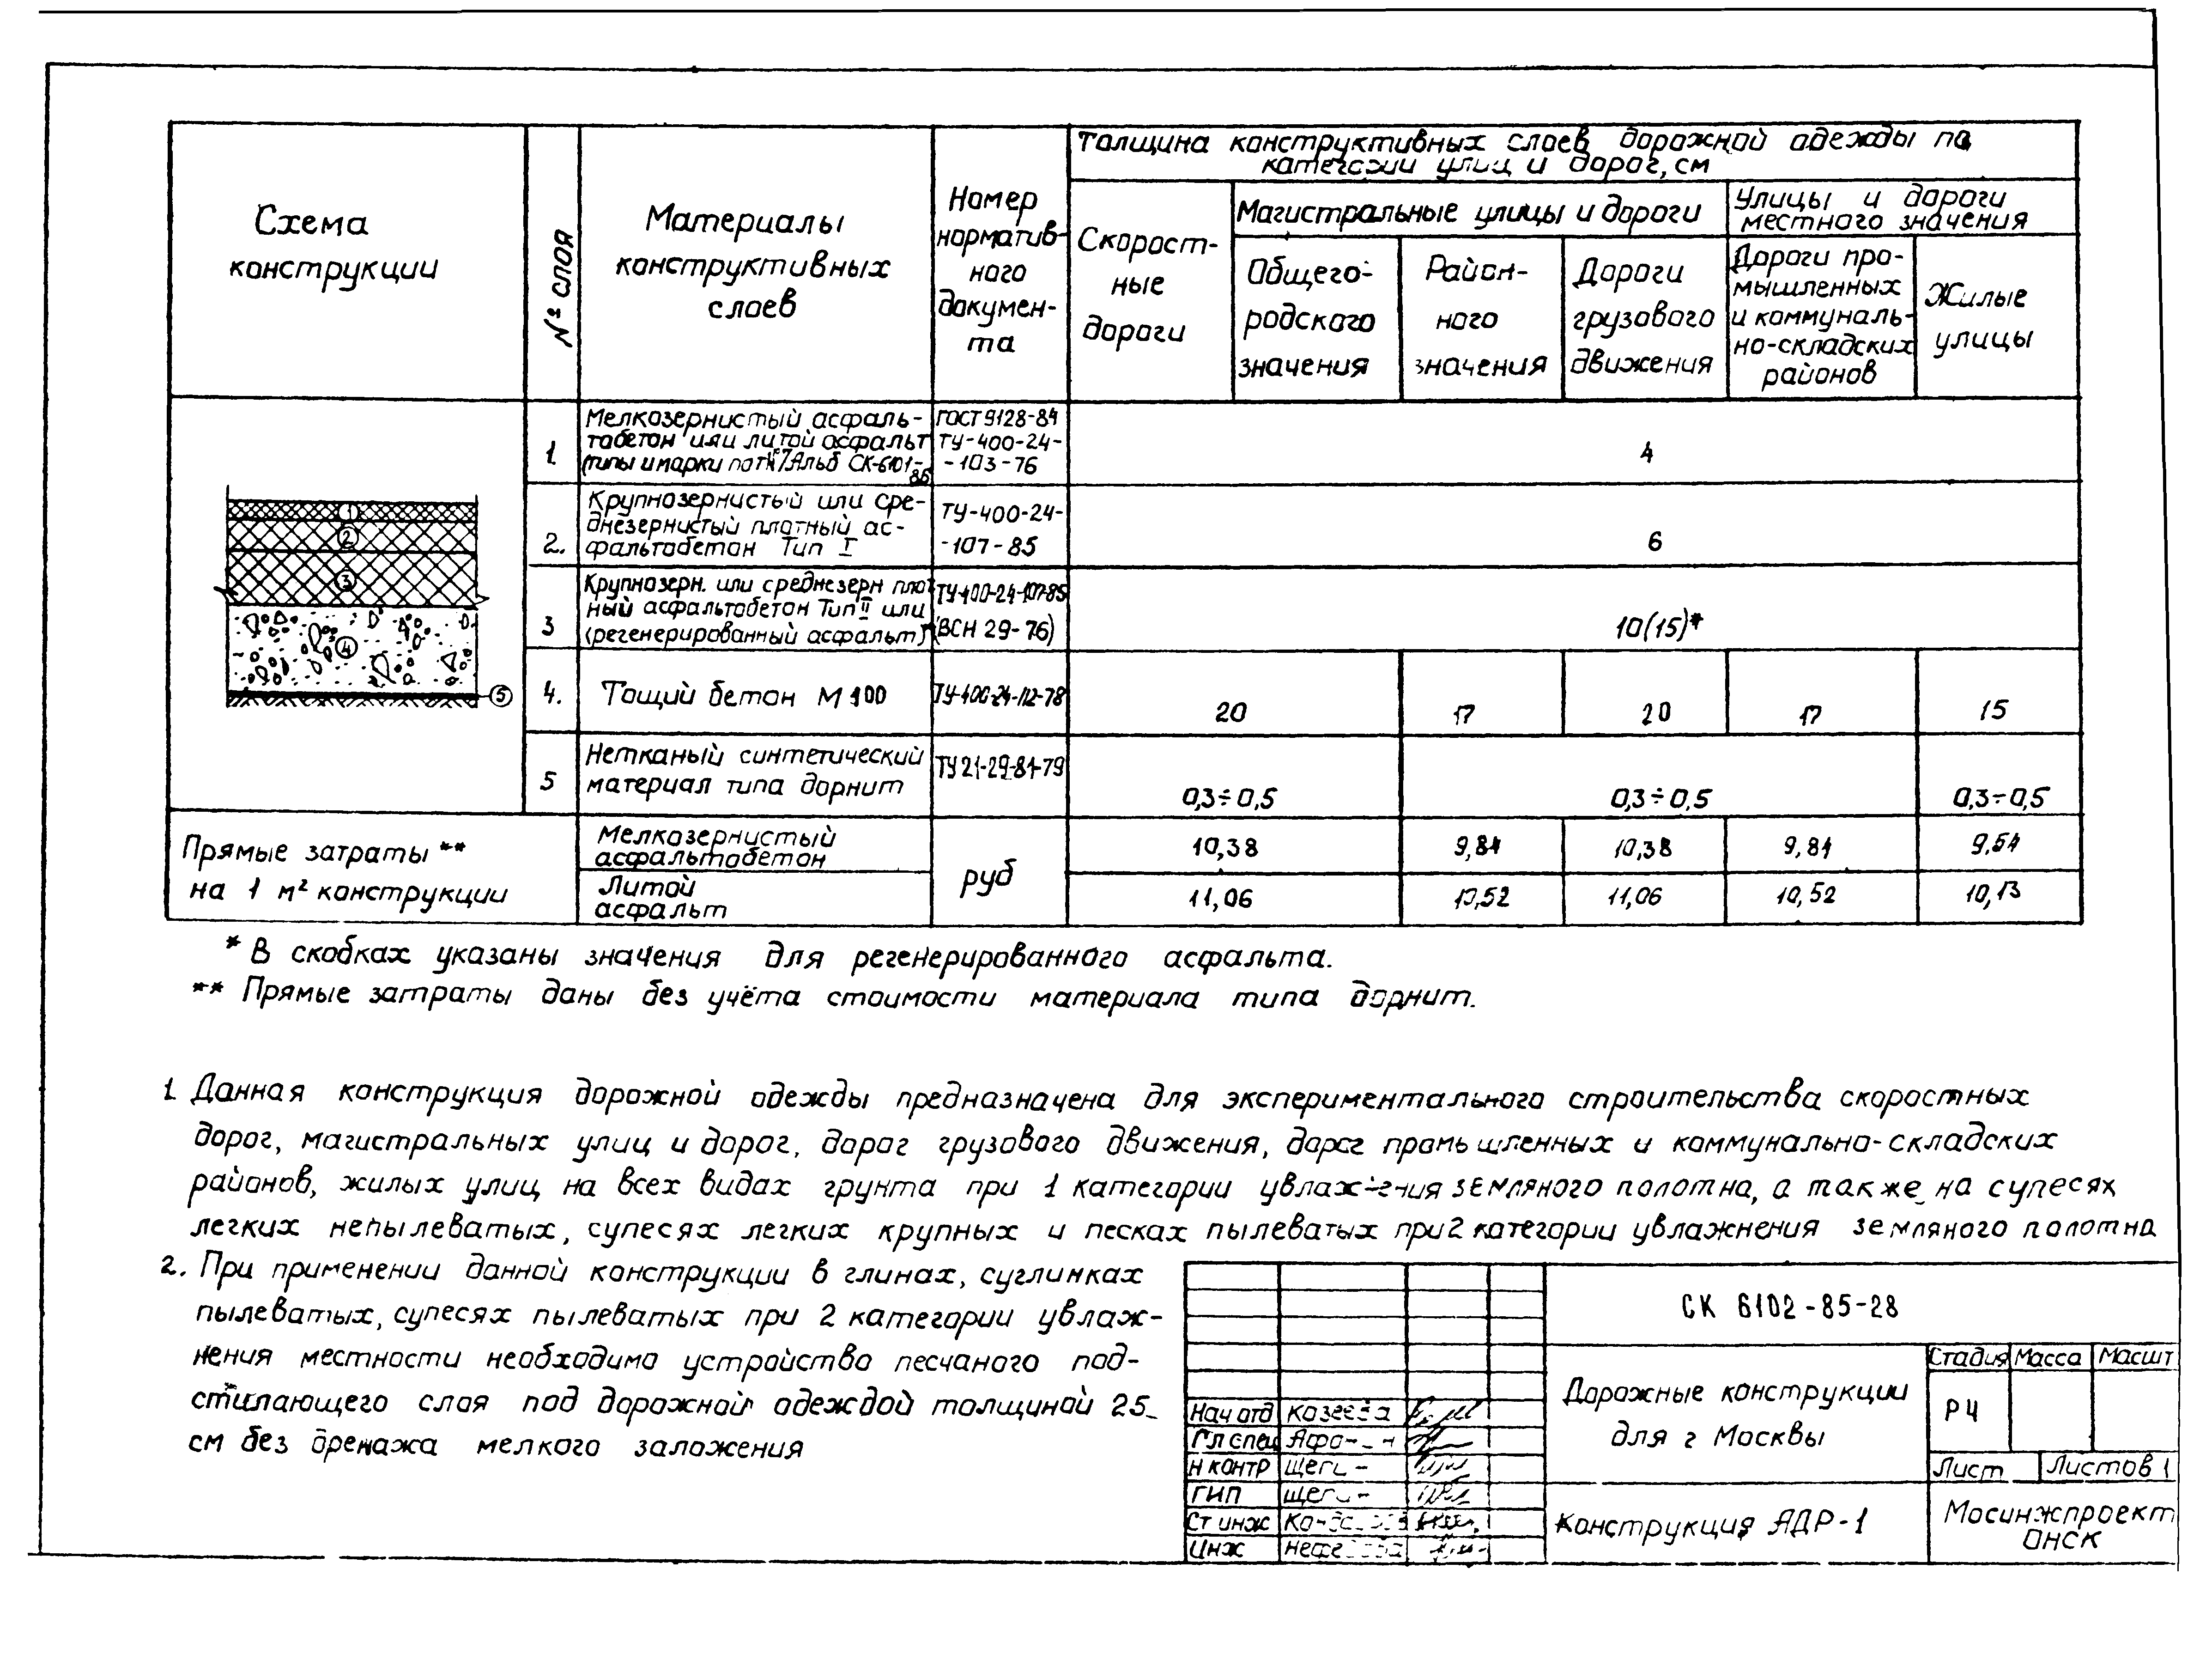 Толщина конструктивных слоев дорожной одежды по
категории улиц и дорог, см
Схема
конструкции
№ слоя
Материалы
конструктивных
слоев
Номер
норматив-
ного
докумен-
та
Скорост-
ные
дороги
Магистральные улицы и дороги
Улицы и дороги
местного значения
Общего-
родского
значения
Район-
ного
значения
Дороги
грузового
движения
Дороги про-
мышленных
и коммуналь-
но-складских
районов
Жилые
улицы
1.
Мелкозернистый асфаль-
тобетон или литой асфальт
(типы и марки по т.№7 Альб СК-6101-
85
ГОСТ 9128-84
ТУ-400-24-
-103-76
4
2.
Крупнозернистый или сре-
днезернистый плотный ас-
фальтобетон Тип I
ТУ-400-24-
-107-85
6
3
Крупнозерн. или среднезерн плот
ный асфальтобетон Тип II или
(регенерированный асфальт)*
ТУ-400-24-107-85
(ВСН 29-76)
10(15)*
4.
Тощий бетон М 100
ТУ-400-24-112-78
20
17
20
17
15
5
Нетканый синтетический
материал типа дорнит
ТУ 21-29-81-79
0,3÷0,5
0,3÷0,5
0,3÷0,5
1
2
3
4
5
Прямые затраты **
на 1 м² конструкции
Мелкозернистый
асфальтобетон
руб
10,38
9,84
10,38
9,84
9,54
Литой
асфальт
11,06
10,52
11,06
10,52
10,13
* В скобках указаны значения для регенерированного асфальта.
** Прямые затраты даны без учёта стоимости материала типа дорнит.
1. Данная конструкция дорожной одежды предназначена для экспериментального строительства скоростных
дорог, магистральных улиц и дорог, дорог грузового движения, дорог промышленных и коммунально-складских
районов, жилых улиц на всех видах грунта при 1 категории увлажнения земляного полотна, а также на супесях
легких непылеватых, супесях легких крупных и песках пылеватых при 2 категории увлажнения земляного полотна
2. При применении данной конструкции в глинах, суглинках
пылеватых, супесях пылеватых при 2 категории увлаж-
нения местности необходимо устройство песчаного под-
стилающего слоя под дорожной одеждой толщиной 25
см без дренажа мелкого заложения
СК 6102-85-28
Дорожные конструкции
для г Москвы
Стадия Масса Масшт
РЧ
Лист Листов 1
Конструкция АДР-1
Мосинжпроект
ОНСК
Нач отд Козеева
Гл спец
Н контр
ГИП
Ст инж
Инж